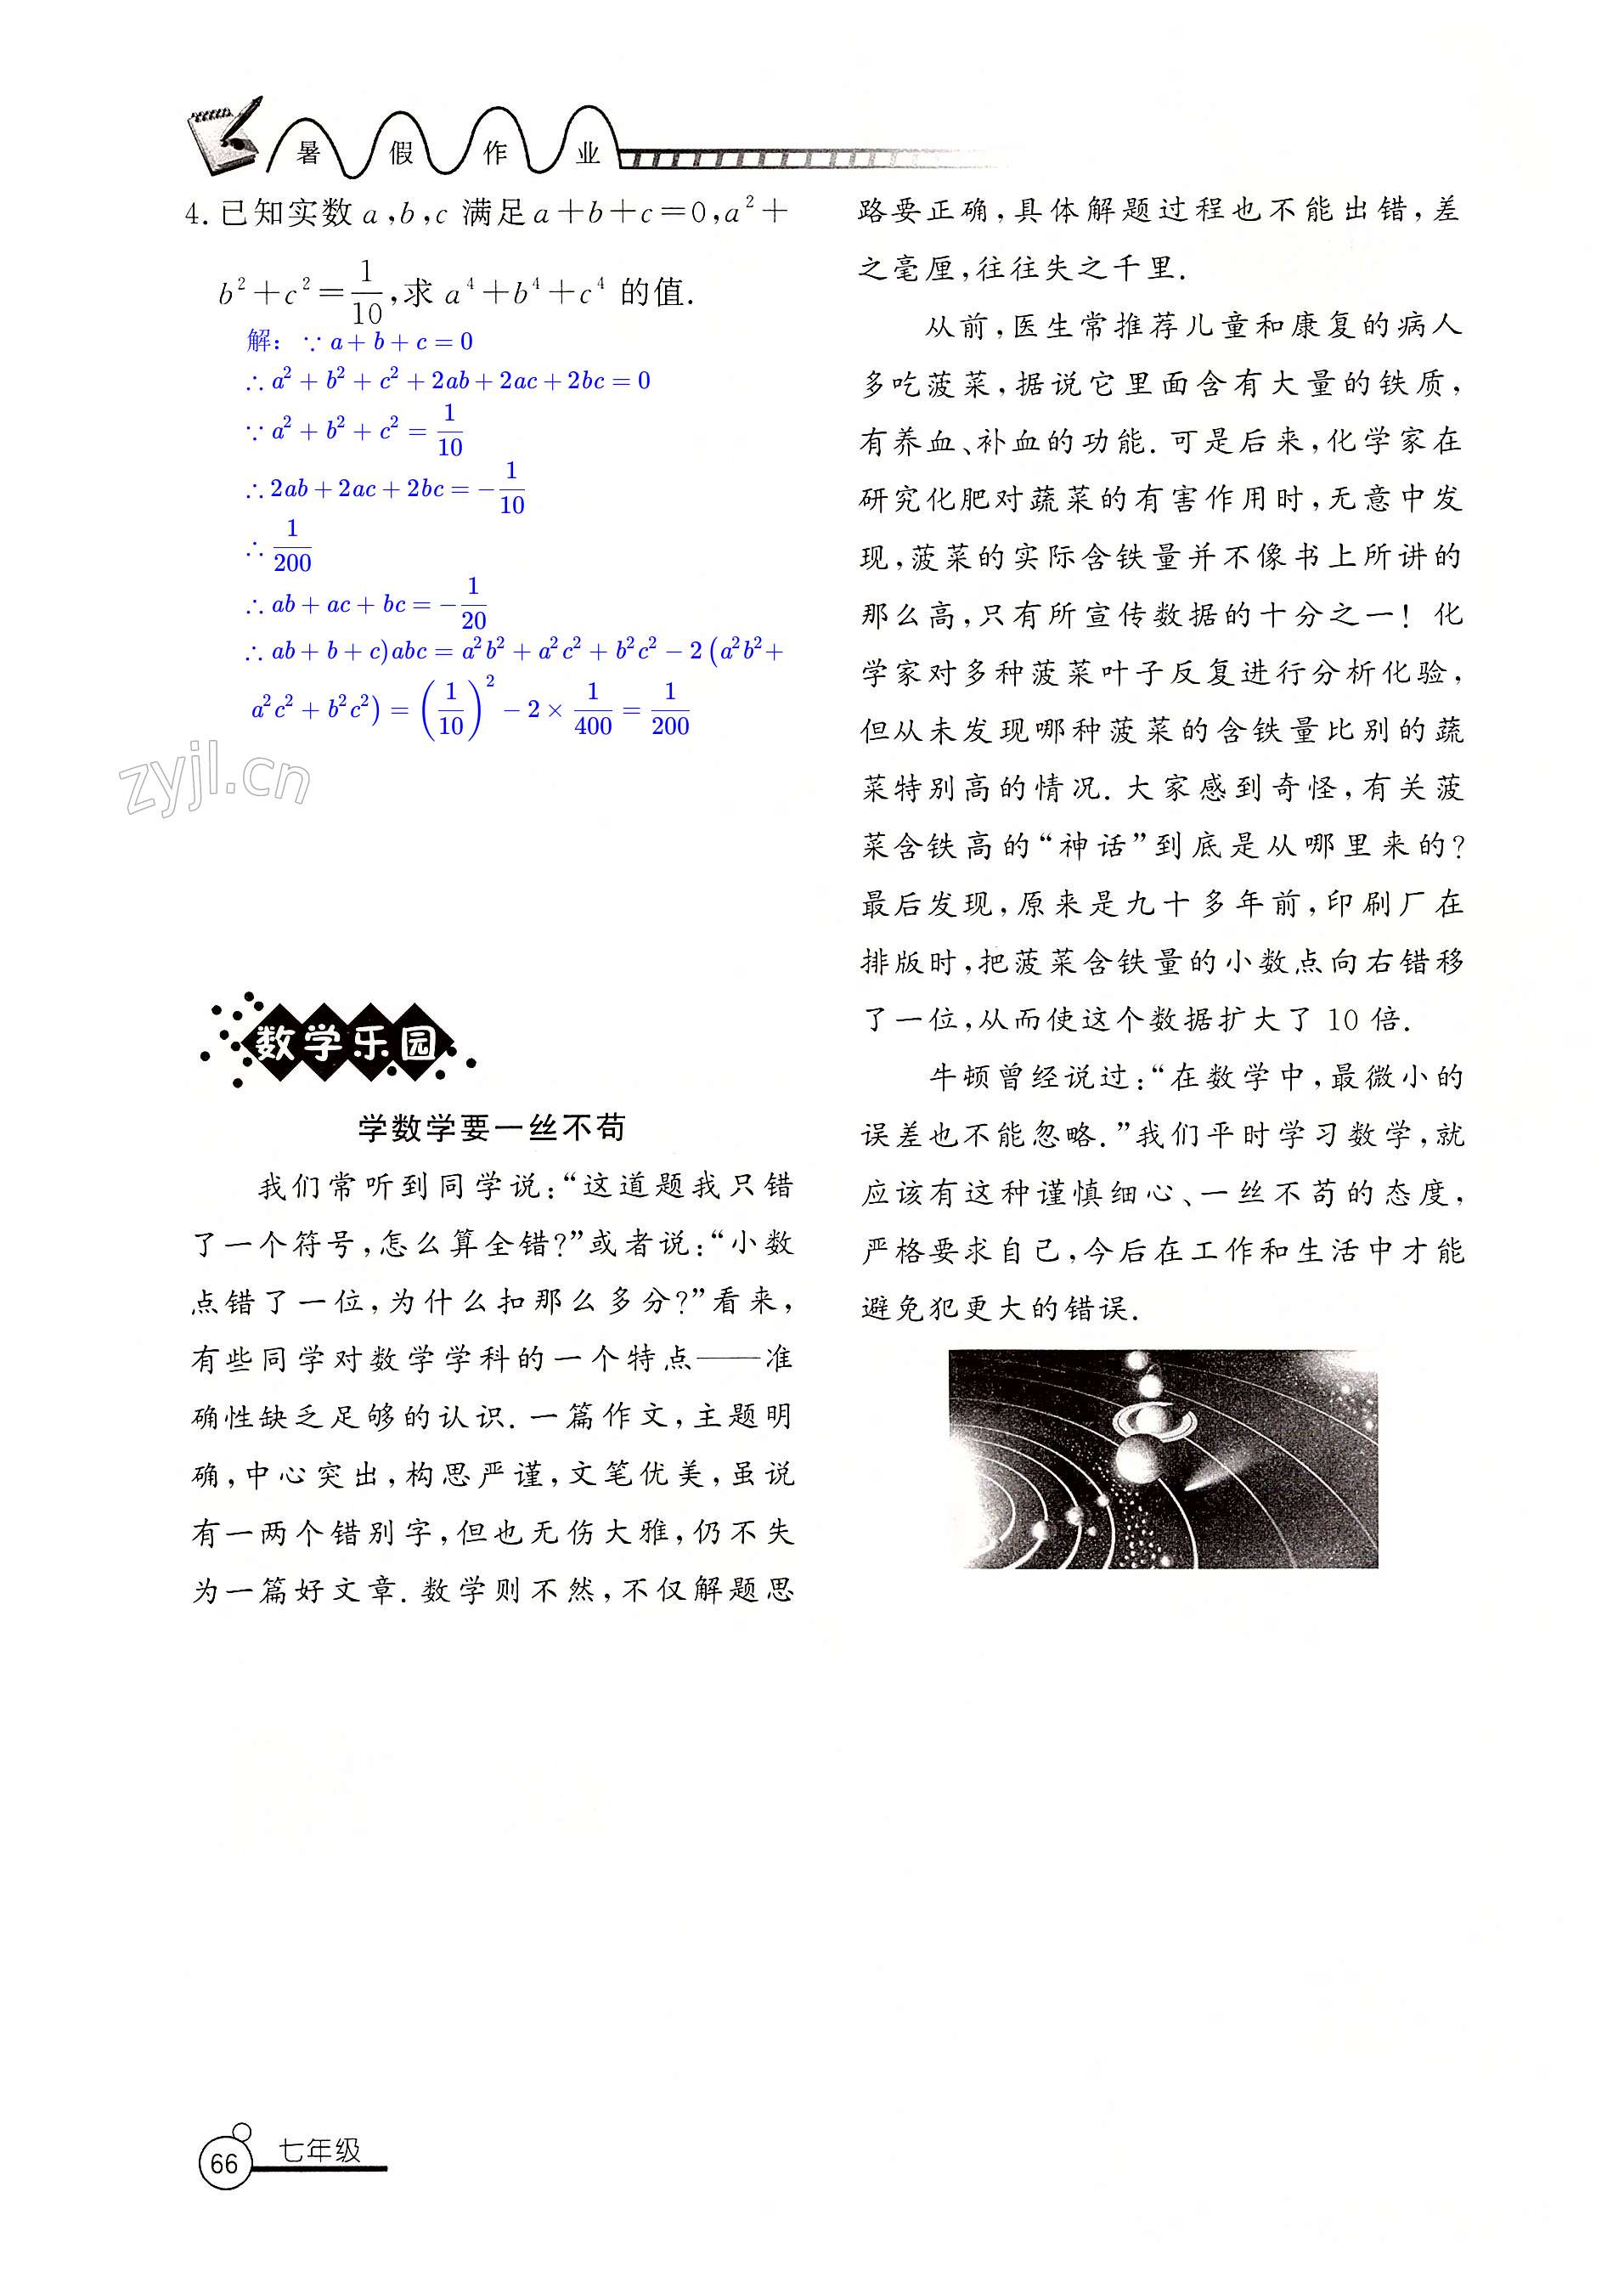 暑假作业
4.已知实数a,b,c满足a+b+c=0,a²+
b²+c²=1/10,求a⁴+b⁴+c⁴的值.
解：∵a+b+c=0
∴a²+b²+c²+2ab+2ac+2bc=0
∵a²+b²+c²=1/10
∴2ab+2ac+2bc=-1/10
∴1/200
∴ab+ac+bc=-1/20
∴ab+b+c)abc=a²b²+a²c²+b²c²-2(a²b²+
a²c²+b²c²)=(1/10)²-2×1/400=1/200
zyjl.cn
数学乐园
学数学要一丝不苟
我们常听到同学说:“这道题我只错
了一个符号,怎么算全错?”或者说:“小数
点错了一位,为什么扣那么多分?”看来,
有些同学对数学学科的一个特点——准
确性缺乏足够的认识.一篇作文,主题明
确,中心突出,构思严谨,文笔优美,虽说
有一两个错别字,但也无伤大雅,仍不失
为一篇好文章.数学则不然,不仅解题思
路要正确,具体解题过程也不能出错,差
之毫厘,往往失之千里.
从前,医生常推荐儿童和康复的病人
多吃菠菜,据说它里面含有大量的铁质,
有养血、补血的功能.可是后来,化学家在
研究化肥对蔬菜的有害作用时,无意中发
现,菠菜的实际含铁量并不像书上所讲的
那么高,只有所宣传数据的十分之一!化
学家对多种菠菜叶子反复进行分析化验,
但从未发现哪种菠菜的含铁量比别的蔬
菜特别高的情况.大家感到奇怪,有关菠
菜含铁高的“神话”到底是从哪里来的?
最后发现,原来是九十多年前,印刷厂在
排版时,把菠菜含铁量的小数点向右错移
了一位,从而使这个数据扩大了10倍.
牛顿曾经说过:“在数学中,最微小的
误差也不能忽略.”我们平时学习数学,就
应该有这种谨慎细心、一丝不苟的态度,
严格要求自己,今后在工作和生活中才能
避免犯更大的错误.
66 七年级